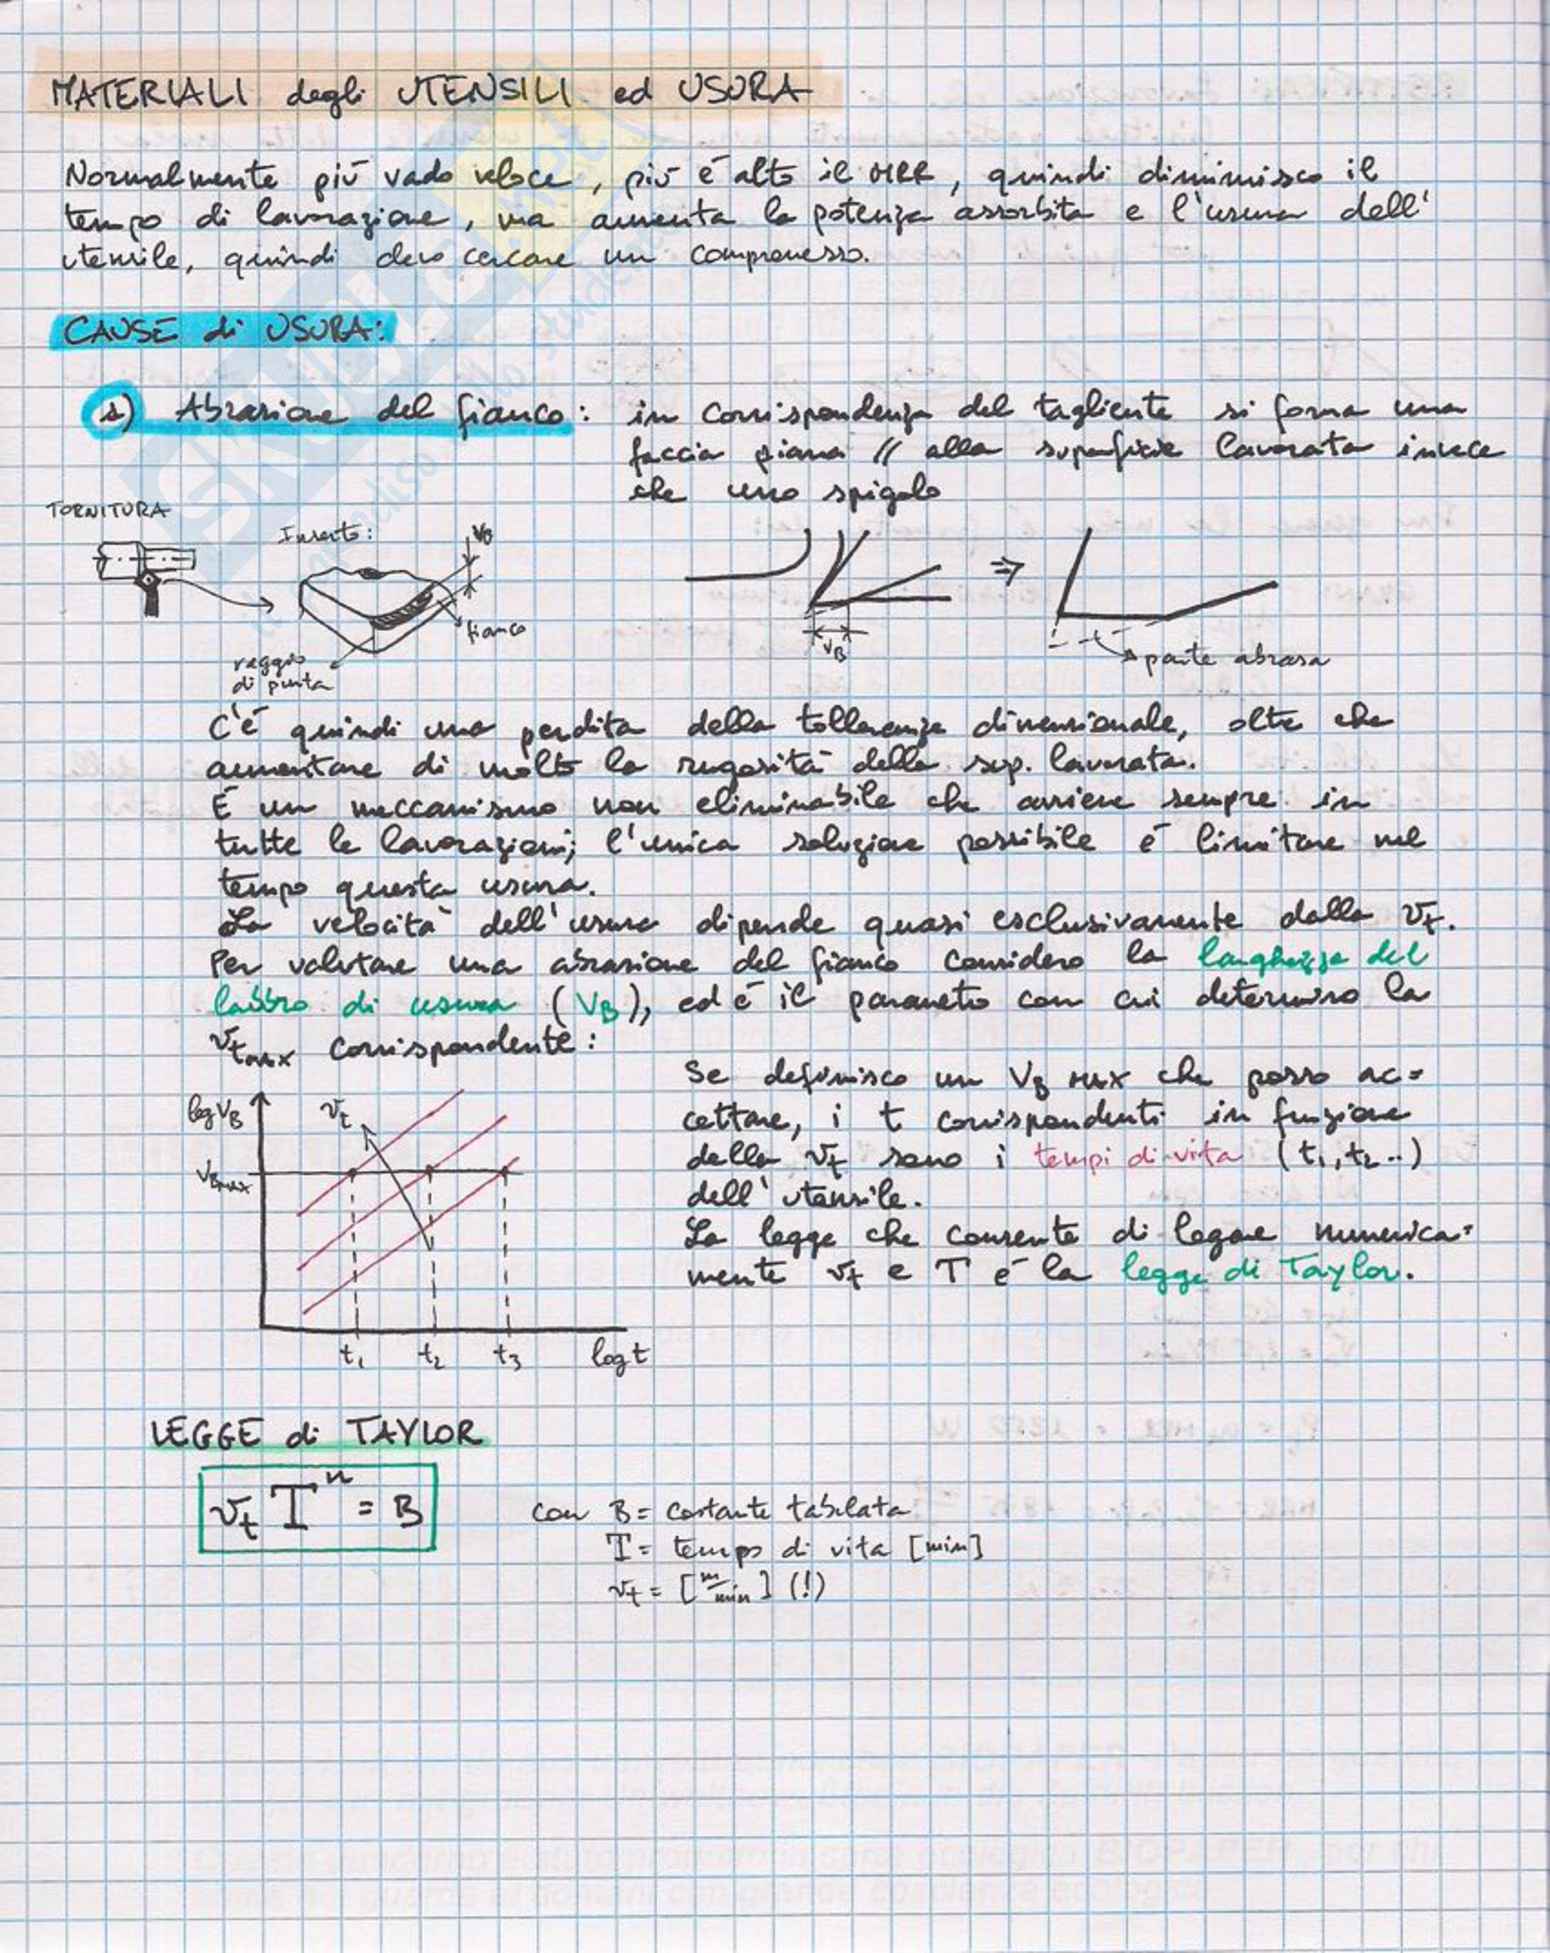 MATERIALI degli UTENSILI ed USURA
Normalmente più vado veloce, più è alto il MRR, quindi diminuisco il
tempo di lavorazione, ma aumenta la potenza assorbita e l'usura dell'
utensile, quindi devo cercare un compromesso.
CAUSE di USURA:
1) Abrasione del fianco: in corrispondenza del tagliente si forma una
faccia piana // alla superficie lavorata invece
che uno spigolo
TORNITURA
Inserto:
VB
fianco
raggio
di punta
VB
⇒
parte abrasa
C'è quindi una perdita della tolleranza dimensionale, oltre che
aumentare di molto la rugosità della sup. lavorata.
È un meccanismo non eliminabile che avviene sempre in
tutte le lavorazioni; l'unica soluzione possibile è limitare nel
tempo questa usura.
La velocità dell'usura dipende quasi esclusivamente dalla vt.
Per valutare una abrasione del fianco considero la larghezza del
labbro di usura (VB), ed è il parametro con cui determino la
vtmax corrispondente:
Se definisco un VB MAX che posso ac=
cettare, i t corrispondenti in funzione
della vt sono i tempi di vita (t1, t2..)
dell'utensile.
La legge che consente di legare numerica=
mente vt e T è la legge di Taylor.
log VB
vt
VBMAX
t1 t2 t3 log t
LEGGE di TAYLOR
vt T^n = B
con B = costante tabulata
T = tempo di vita [min]
vt = [m/min] (!)